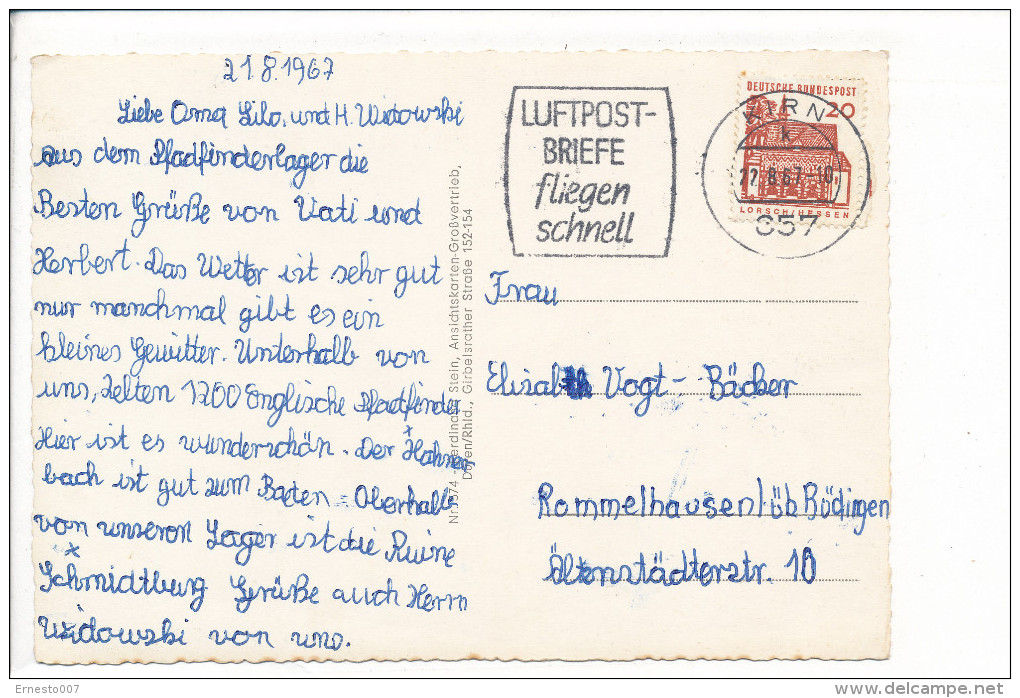 21.8.1967
Liebe Oma Lilo, und H. Widowski
aus dem Pfadfinderlager die
Besten Grüße von Vati und
Herbert. Das Wetter ist sehr gut
nur manchmal gibt es ein
kleines Gewitter. Unterhalb von
uns, zelten 1200 Englische Pfadfinder
Hier ist es wunderschön. Der Hahnen
bach ist gut zum Baden. Oberhalb
von unseren Lager ist die Ruine
Schmidtburg Grüße auch Herrn
Widowski von uns.
Ferdinand Stein, Ansichtskarten-Großvertrieb,
Düren/Rhld., Girbelsrather Straße 152-154
LUFTPOST-
BRIEFE
fliegen
schnell
DEUTSCHE BUNDESPOST
20
LORSCH/HESSEN
KIRN
k
22.8.67-10
657
Frau
Elisabeth Vogt-Bäcker
Rommelhausen/üb Büdingen
Altenstädterstr. 10
Ernesto007
www.delcampe.net